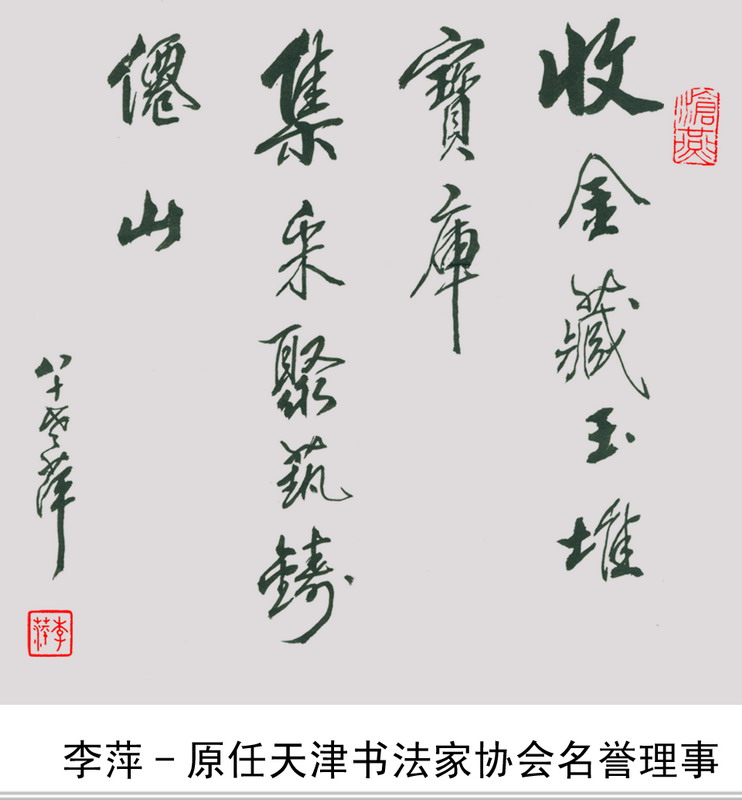 收金藏玉堆
寶庫
集采聚藝鑄
僊山
八十老萍
滄燕
李萍
李萍－原任天津书法家协会名誉理事